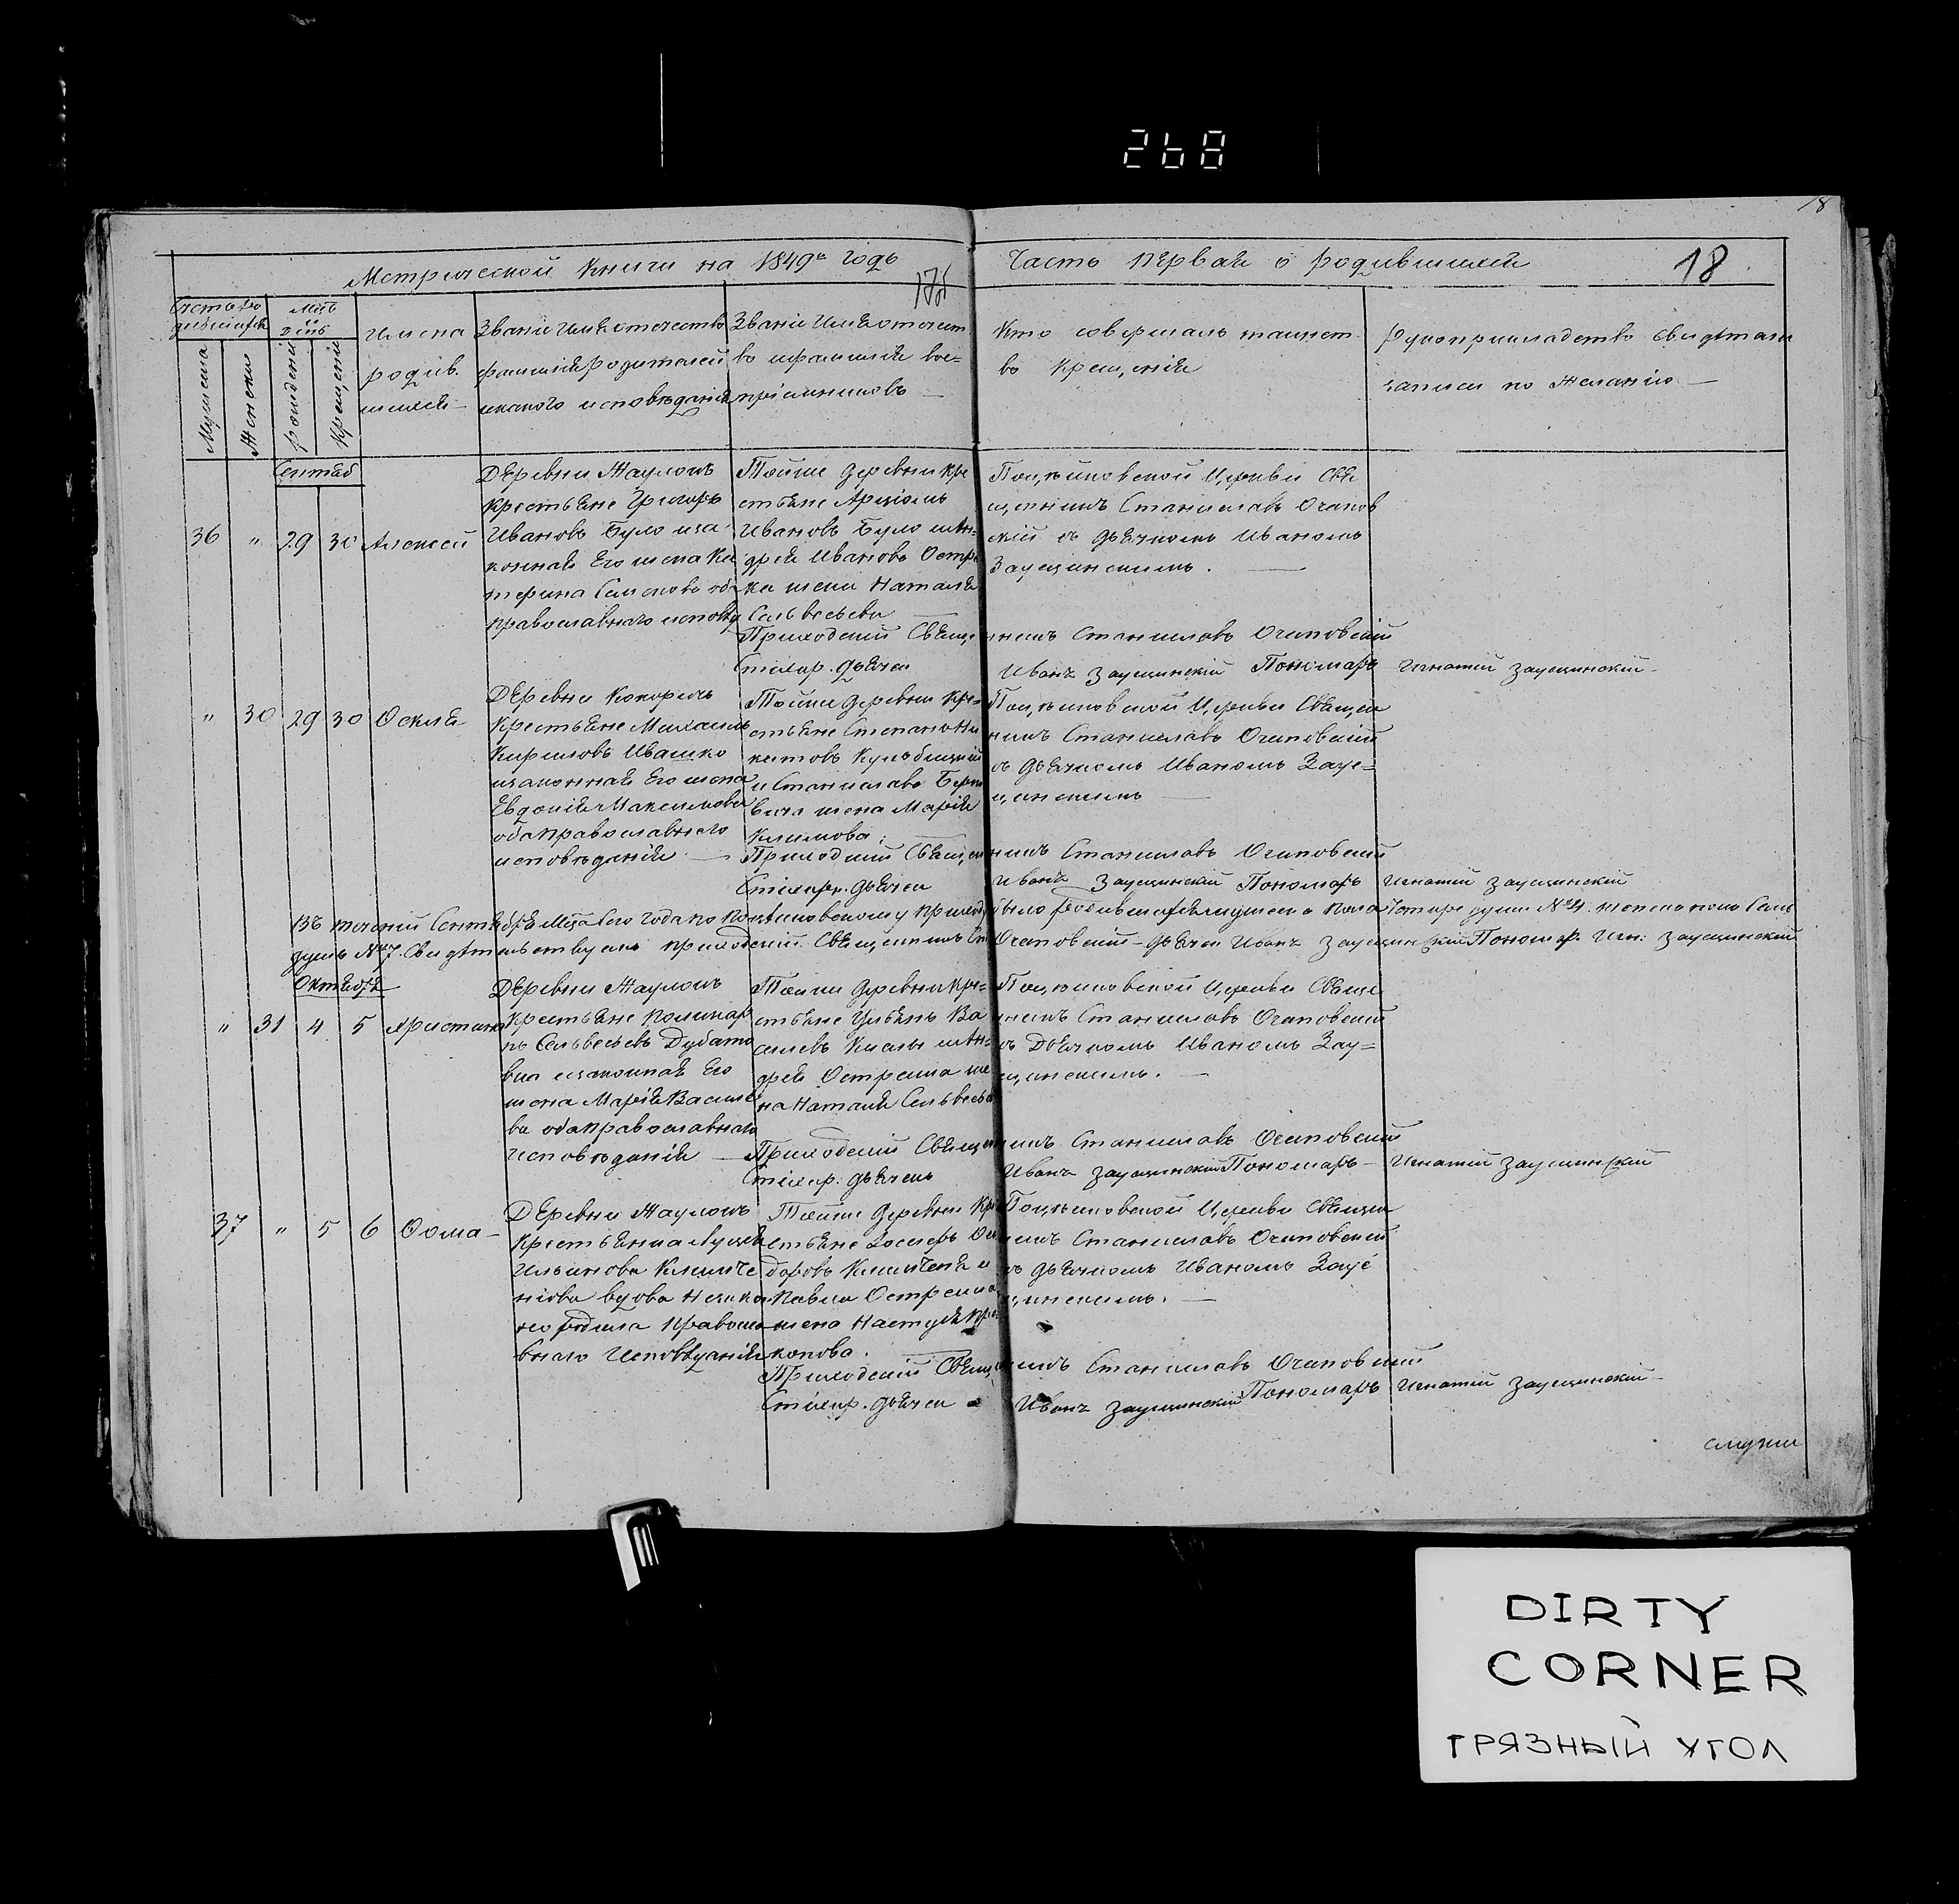 268
18
Метрической книги на 1849й годъ
Часть первая о родившихся
18
Мѣсъ
и
день
Мужеска
Женски
рождені
крещені
Имена
родив
шихся
Званіе Имя отечество
фамилія родителей
и какого исповѣданія
Званіе Имя отечест
во и фамилія вос=
пріемниковъ
Кто совершалъ таинст
во крещенія
Рукоприкладство свидѣтель
записи по желанію
Сентяб
36 " 29 30 Алексей
Деревни Жауломъ
крестьяне Григоръ
Ивановъ Було иза
конная Его жена Ка
терина Семенова оба
православнаго исповѣд
Тойже деревни кре
стьяне Арціомъ
Ивановъ Було и Ан=
дрея Иванова Остр
ка жена Наталья
Сельвесьева
Поц,ѣйковской Церкви Свя
щенникъ Станиславъ Очаповс
кій съ дьячкомъ Иваномъ
Заущинскимъ.
Приходскій Священникъ Станиславъ Очаповскій
Стихир. дьячекъ Иванъ Заущинскій Пономарь Игнатій Заущинскій
" 30 29 30 Оекля
Деревни Кокоричъ
Крестьяне Михаилъ
Кириловъ Ивашко
изаконная Его жена
Евдокія Максимова
оба православнаго
исповѣданія
Тойже деревни кре=
стьяне Степанъ Ни
китовъ Кульбицкій
и Станислава
жена Марія
Климова;
Поц,ѣйковской Церкви Священ
никъ Станиславъ Очаповскій
съ дьячкомъ Иваномъ Зау=
щинскимъ
Приходскій Священникъ Станиславъ Очаповскій
Стихир. дьячекъ Иванъ Заущинскій Пономарь Игнатій Заущинскій
Въ теченіи Сентября Мѣца Сего года по приход было родившихся мужеска пола Четыре души №4. женска пола Семь
душъ №7. Свидѣтельствуемъ приходскій Священникъ Ст Очаповскій дьячек Иванъ Заущинскій Пономар. Игн: Заущинскій
Октября
" 31 4 5 Христина
Деревни Жауломъ
Крестьяне Поликар
пъ Сельвесьевъ Дубато
вка изаконная Его
жена Марія Василе
ва оба православнаго
исповѣданія
Тойже деревни кре=
стьяне Ульянъ Ва
силевъ и Ан=
дрея Острейка же
на Наталья Сельвесьева
Поц,ѣйковской Церкви Свяще
нникъ Станиславъ Очаповскій
съ Дьячкомъ Иваномъ Зау=
щинскимъ.
Приходскій Священникъ Станиславъ Очаповскій
Стихир. дьячекъ Иванъ Заущинскій Пономарь Игнатій Заущинскій
37 " 5 6 Оома
Деревни Жауломъ
Крестьянка Луцея
Ильинова Климче
нкова вдова Незако
но родила Правосла
внаго Исповѣданія
Тойже деревни Кре
стьяне Іосифъ Фео
доровъ Климченя и
Павла Острейка
жена Настуля Про=
копова.
Поц,ѣйковской Церкви Священ
никъ Станиславъ Очаповскій
съ дьячкомъ Иваномъ Зау
щинскимъ.
Приходскій Священникъ Станиславъ Очаповскій
Стихир. дьячекъ Иванъ Заущинскій Пономарь Игнатій Заущинскій
DIRTY
CORNER
ГРЯЗНЫЙ УГОЛ